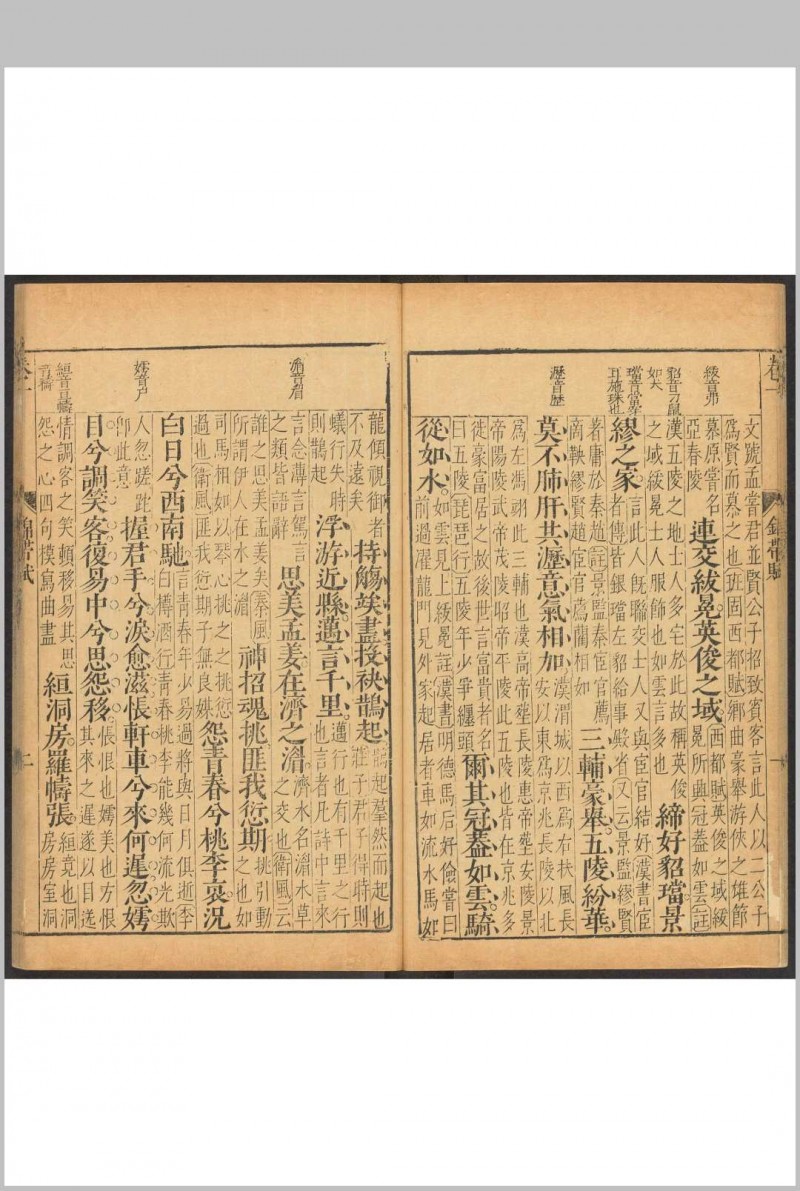 卷一
錦帶賦
一
紱音弗
貂音刁鼠
如犬
璫音當
耳施珠也
瀝音歷
文號孟嘗君並賢公子招致賓客言此人以二公子
爲賢而慕之也班固西都賦鄉曲豪舉游俠之雄節
慕原嘗名
亞春陵
連交紱冕英俊之域
西都賦英俊之域綬
冕所興冠蓋如雲註
漢五陵之地士人多宅於此故稱英俊
之域綬冕士人服飾也如雲言多也
締好貂璫景
繆之家
言此人旣聯交士人又與宦官結好漢書宦
者傳皆銀璫左貂給事殿省又云景監繆賢
者庸於秦趙註景監秦宦官薦
商鞅繆賢趙宦官薦藺相如
三輔豪舉五陵紛華
莫不肺肝共瀝意氣相加
漢渭城以西爲右扶風長
安以東爲京兆長陵以北
爲左馮翊此三輔也漢高帝塟長陵惠帝塟安陵景
帝陽陵武帝茂陵昭帝平陵此五陵也皆在京兆多
徙豪富居之故後世言富貴者名
曰五陵琵琶行五陵年少爭纏頭
爾其冠蓋如雲騎
從如水
如雲見上綬冕註漢書明德馬后好儉嘗曰
前過濯龍門見外家起居者車如流水馬如
湄音眉
嫮音户
絙音亘幬
音檮
龍傾視御者
不及遠矣
持觴竢盡投袂鵲起
鵲起羣然而起也
莊子君子得時則
蟻行失時
則鵲起
浮游近縣邁言千里
邁行也有千里之行
也言者凡詩中言來
言念薄言駕言
之類皆語辭
思美孟姜在濟之湄
濟水名湄水草
之交也衛風云
誰之思美孟姜矣秦風
所謂伊人在水之湄
神招魂挑匪我愆期
挑引動
之也如
司馬相如以琴心挑之之挑愆
過也衛風匪我愆期子無良媒
怨青春兮桃李哀況
白日兮西南馳
言青春年少易過將與日月俱逝李
白樽酒行青春桃李能幾何流光欺
人忽蹉跎
卽此意
握君手兮淚愈滋悵軒車兮來何遲忽嫮
目兮調笑客復易中兮思怨移
悵恨也嫮美也方恨
其來之遲遂以目送
情調客之笑頓移易其思
怨之心四句摸寫曲盡
絙洞房羅幬張
絙竟也洞
房房室洞
卷一
錦帶賦
二